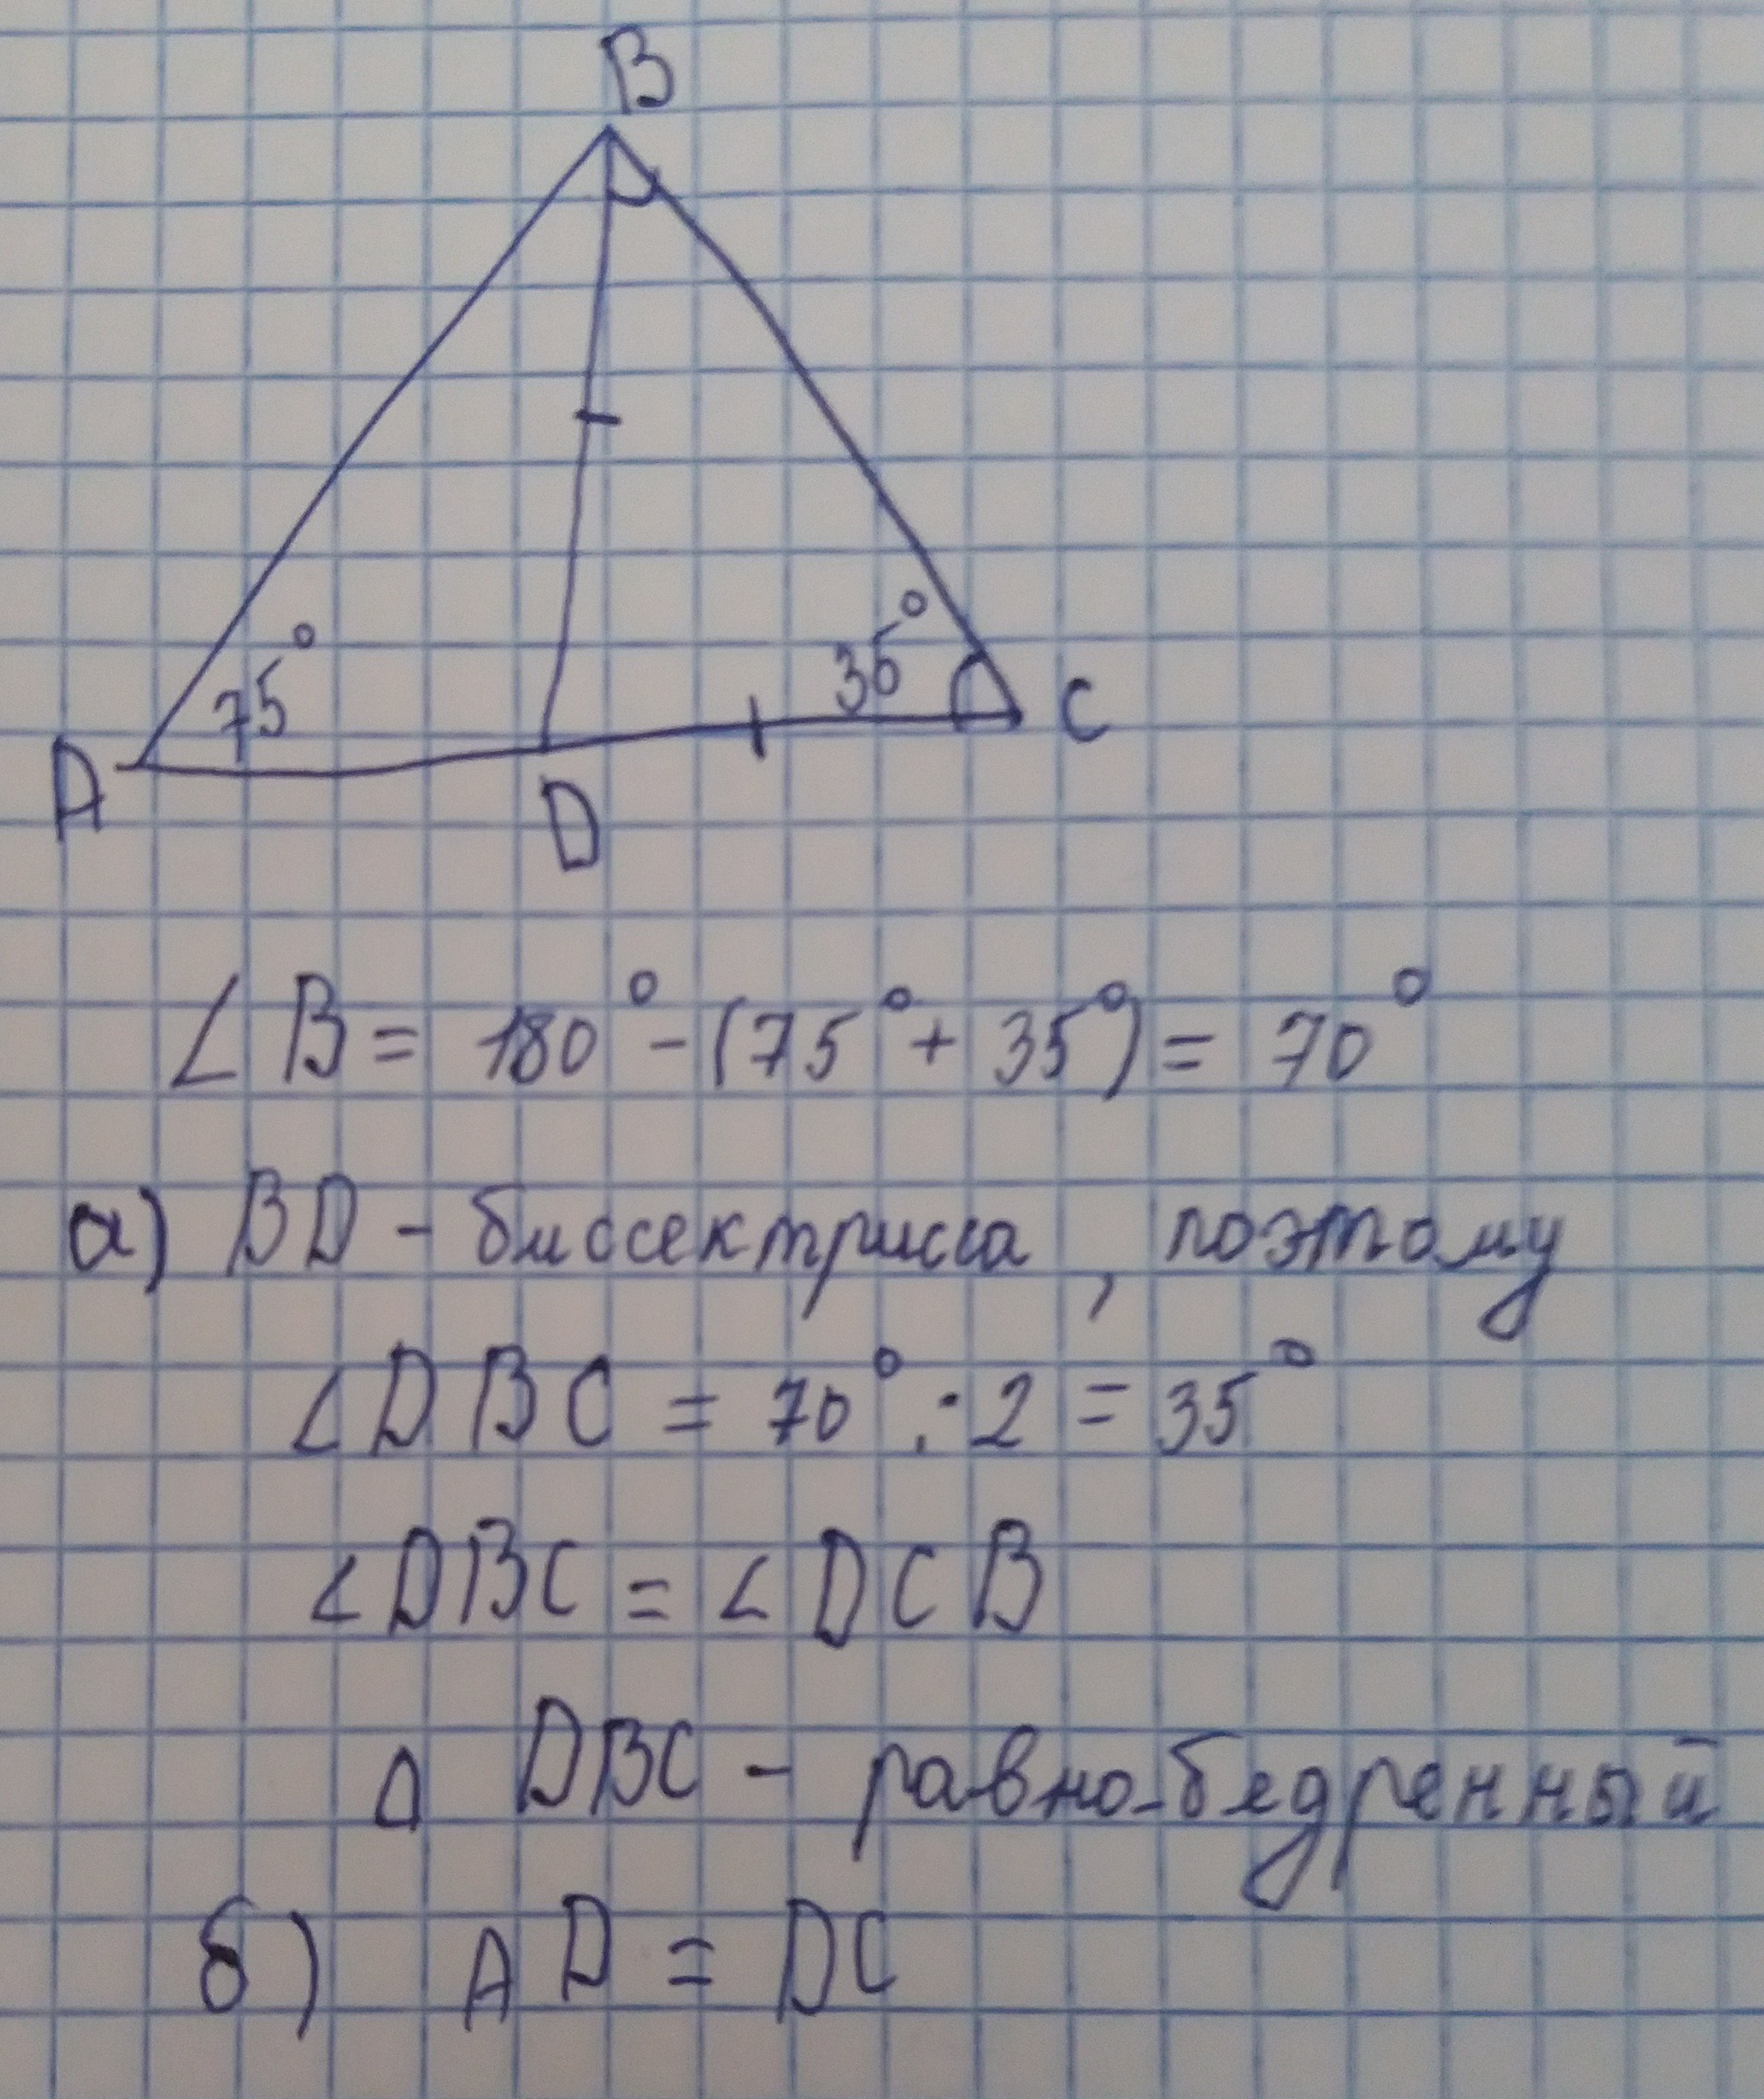 B
75°
35°
A
C
D
∠B = 180° - (75° + 35°) = 70°
а) BD - биссектрисса, поэтому
∠DBC = 70° : 2 = 35°
∠DBC = ∠DCB
Δ DBC - равно-бедренный
б) AD = DC